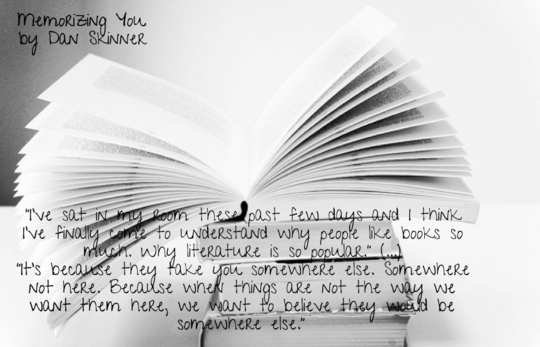 Memorizing You
by Dan Skinner
"I've sat in my room these past few days and I think
I've finally come to understand why people like books so
much. Why literature is so popular." (...)
"It's because they take you somewhere else. Somewhere
not here. Because when things are not the way we
want them here, we want to believe they would be
somewhere else."